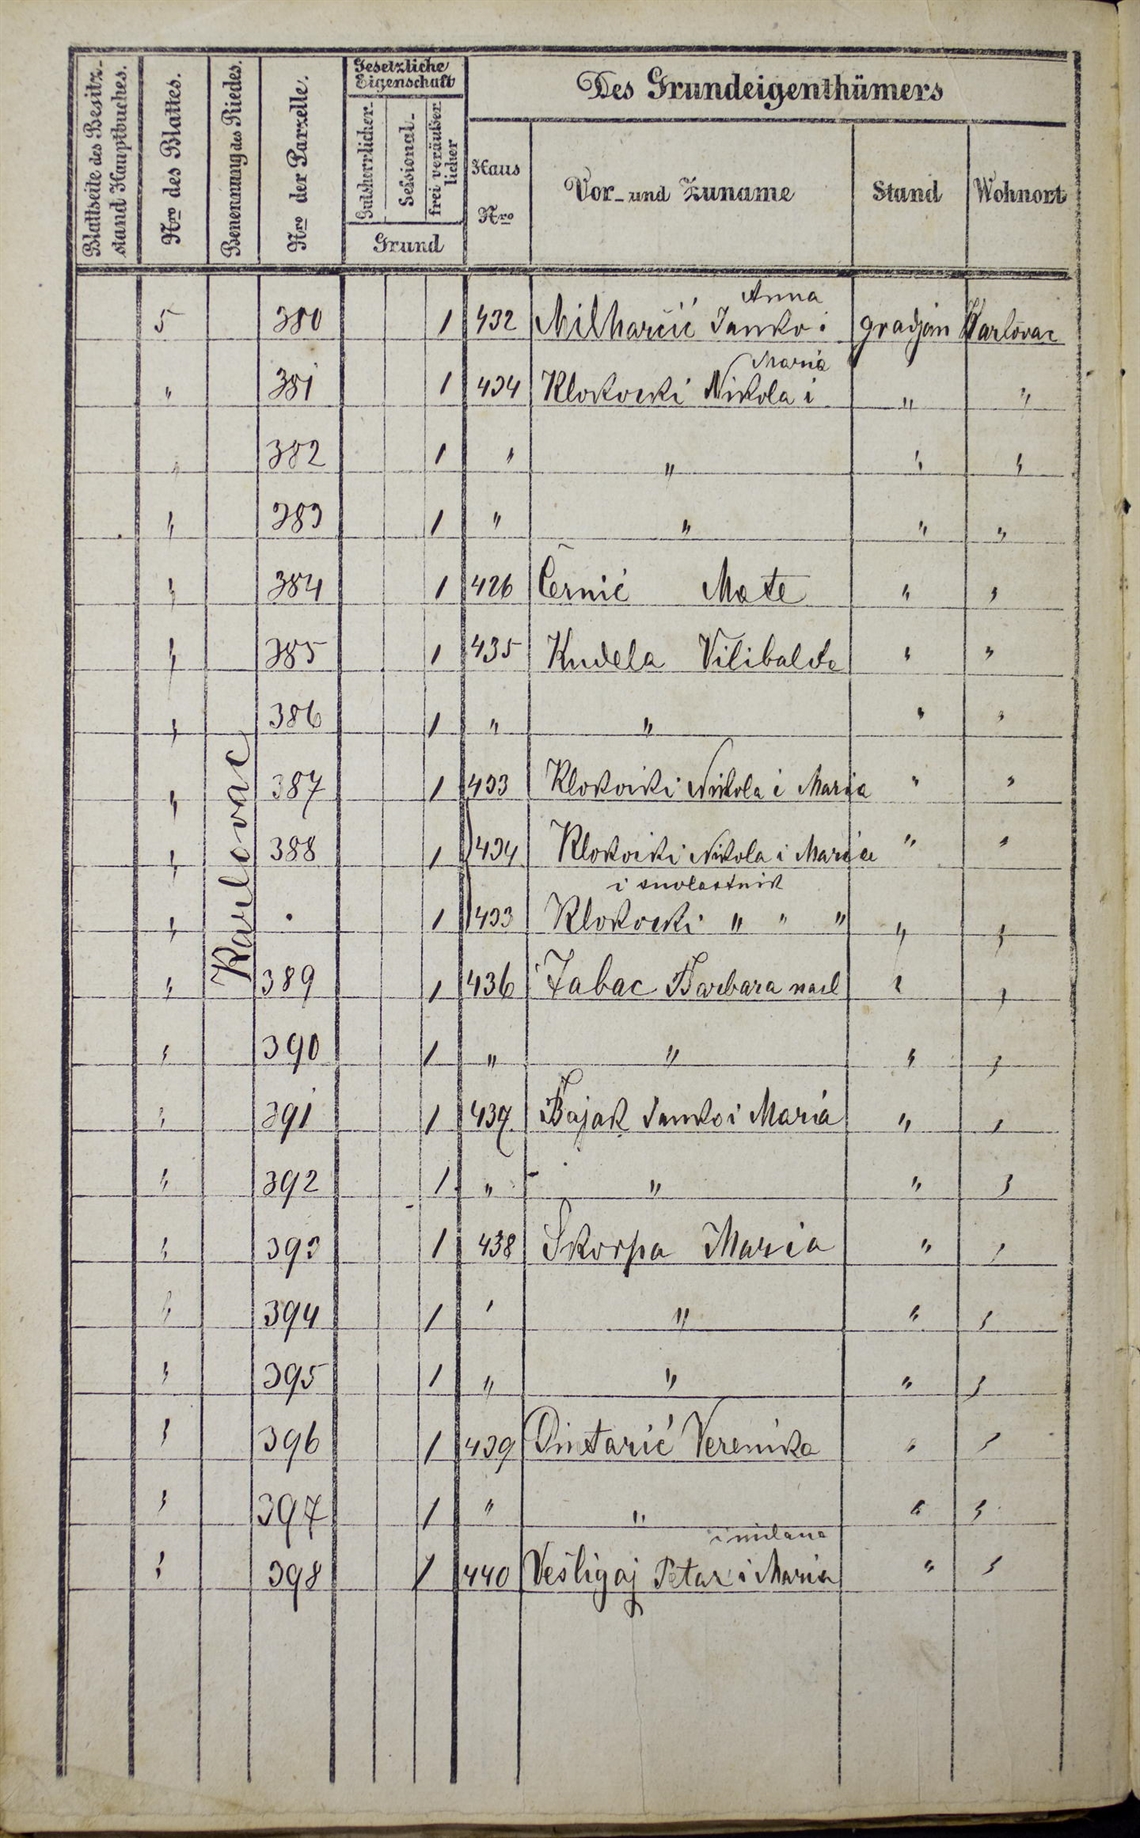 Blattseite des Besitz-
stand Hauptbuches.
Nro des Blattes.
Benennung des Riedes.
Nro der Parzelle.
Gesetzliche
Eigenschaft
Gutsherrlicher
Sessional-
frei veräußer
licher
Grund
Des Grundeigenthümers
Haus
Nro
Vor- und Zuname
Stand
Wohnort
Karlovac
Anna
5 380 1 432 Milharčić Janko i gradjan Karlovac
Maria
" 381 1 434 Klokocki Nikola i " "
" 382 1 " " " "
" 383 1 " " " "
" 384 1 426 Černić Mate " "
" 385 1 435 Kudela Vilibalda " "
" 386 1 " " " "
" 387 1 433 Klokocki Nikola i Maria " "
" 388 1 434 Klokocki Nikola i Maria " "
i suvlastnik
" . 1 433 Klokocki " " " " "
" 389 1 436 Žabac Barbara " "
" 390 1 " " " "
" 391 1 437 Bajak Janko i Maria " "
" 392 1 " " " "
" 393 1 438 Škorpa Maria " "
" 394 1 " " " "
" 395 1 " " " "
" 396 1 439 Dintarić Veronika " "
" 397 1 " " " "
i milana
" 398 1 440 Vešligaj Petar i Maria " "